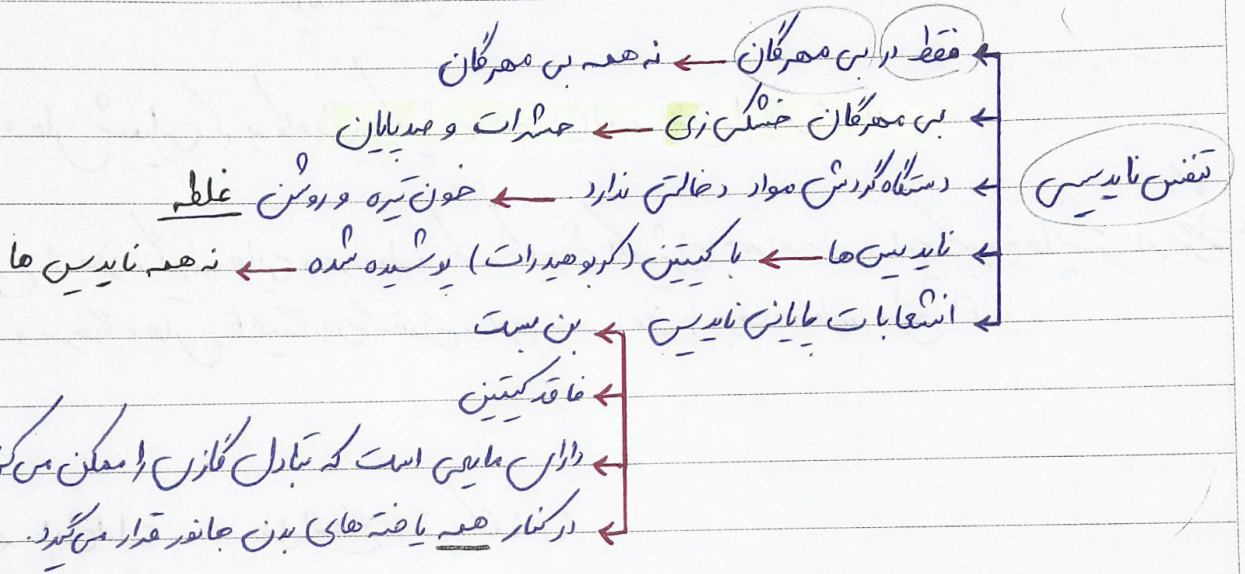 فقط در بی مهرگان ← نه همه بی مهرگان
بی مهرگان خشکی زی ← حشرات و صدپایان
تنفس نایدیسی
دستگاه گردش مواد دخالتی ندارد ← خون تیره و روشن غلطه
نایدیس ها ← با کیتین (کربوهیدرات) پوشیده شده ← نه همه نایدیس ها
انشعابات پایانی نایدیس ← بن بست
← فاقد کیتین
← دارای مایعی است که تبادل گازی را ممکن می
← در کنار همه یاخته های بدن جانور قرار می گیرد.